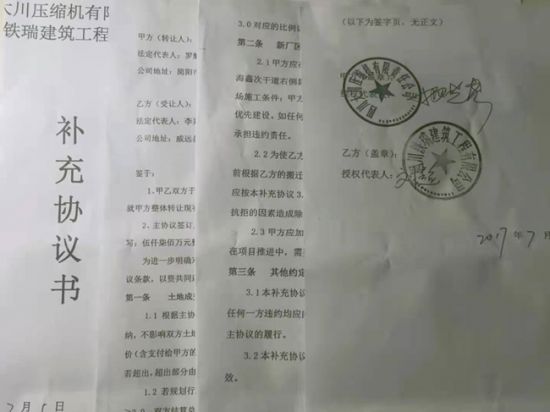 川压缩机有限
铁瑞建筑工程
补充协议书
甲方（转让人）：
法定代表人：罗
公司地址：简阳市
乙方（受让人）：
法定代表人：李
公司地址：威远县
鉴于：
1、甲乙双方于
就甲方整体转让现有
2、主协议签订
写：伍仟柒佰万元整
为进一步明确
议条款，以资共同
第一条 土地成交
1.1 根据主协
纳，不影响双方土地
价（含支付给甲方的
若超出，超出部分由
1.2 若规划行
3.0 对应的比例
第二条 新厂区
2.1 甲方应在
海鑫次干道右侧
场施工条件；甲方
优先建设，如任何
承担违约责任。
2.2 为使乙方
前根据乙方的搬迁
应按本补充协议 3.
抗拒的因素造成除
2.3 甲方应加
在项目推进中，需
第三条 其他约定
3.1 本补充协议
任何一方违约均应
主协议的履行。
3.2 本补充协议
效。
（以下为签字页，无正文）
乙方（盖章）：
授权代表人：
2017 年 7 月